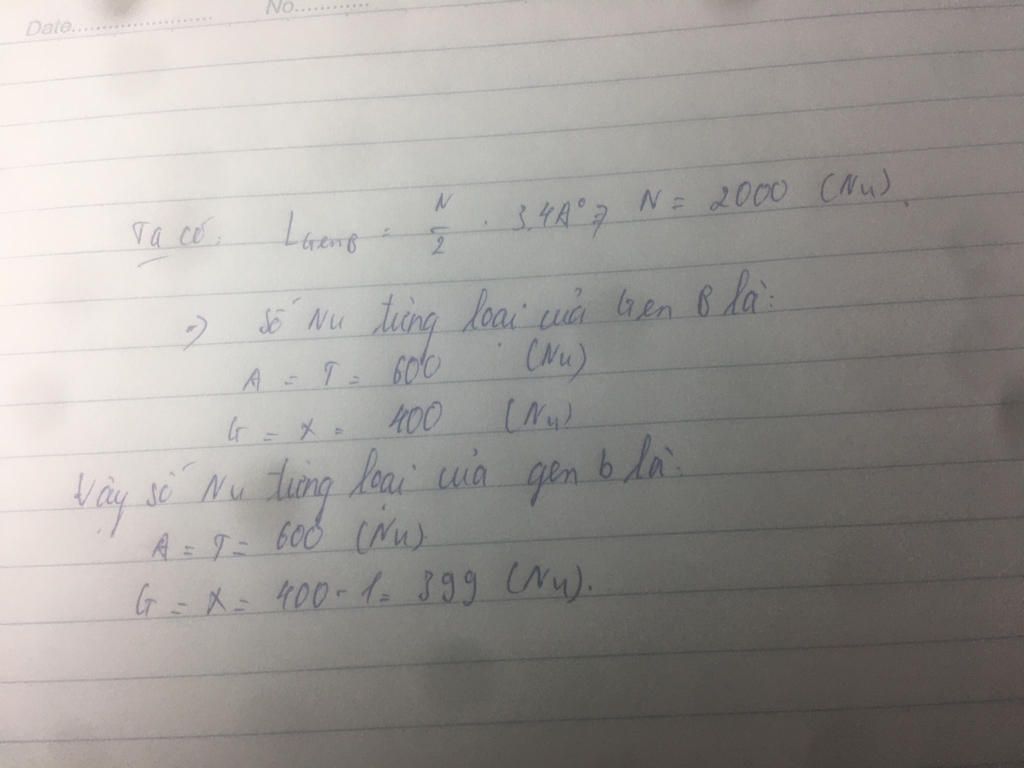 Date.....................
No.............
Ta có: L Gen B = N/2 . 3.4A° => N = 2000 (Nu).
=> Số Nu từng loại của Gen B là:
A = T = 600 (Nu)
G = X = 400 (Nu)
Vậy số Nu từng loại của gen b là:
A = T = 600 (Nu)
G = X = 400 - 1 = 399 (Nu).